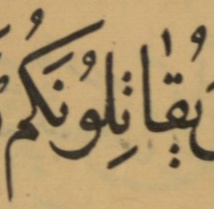 يُقٰاتِلُونَكُم